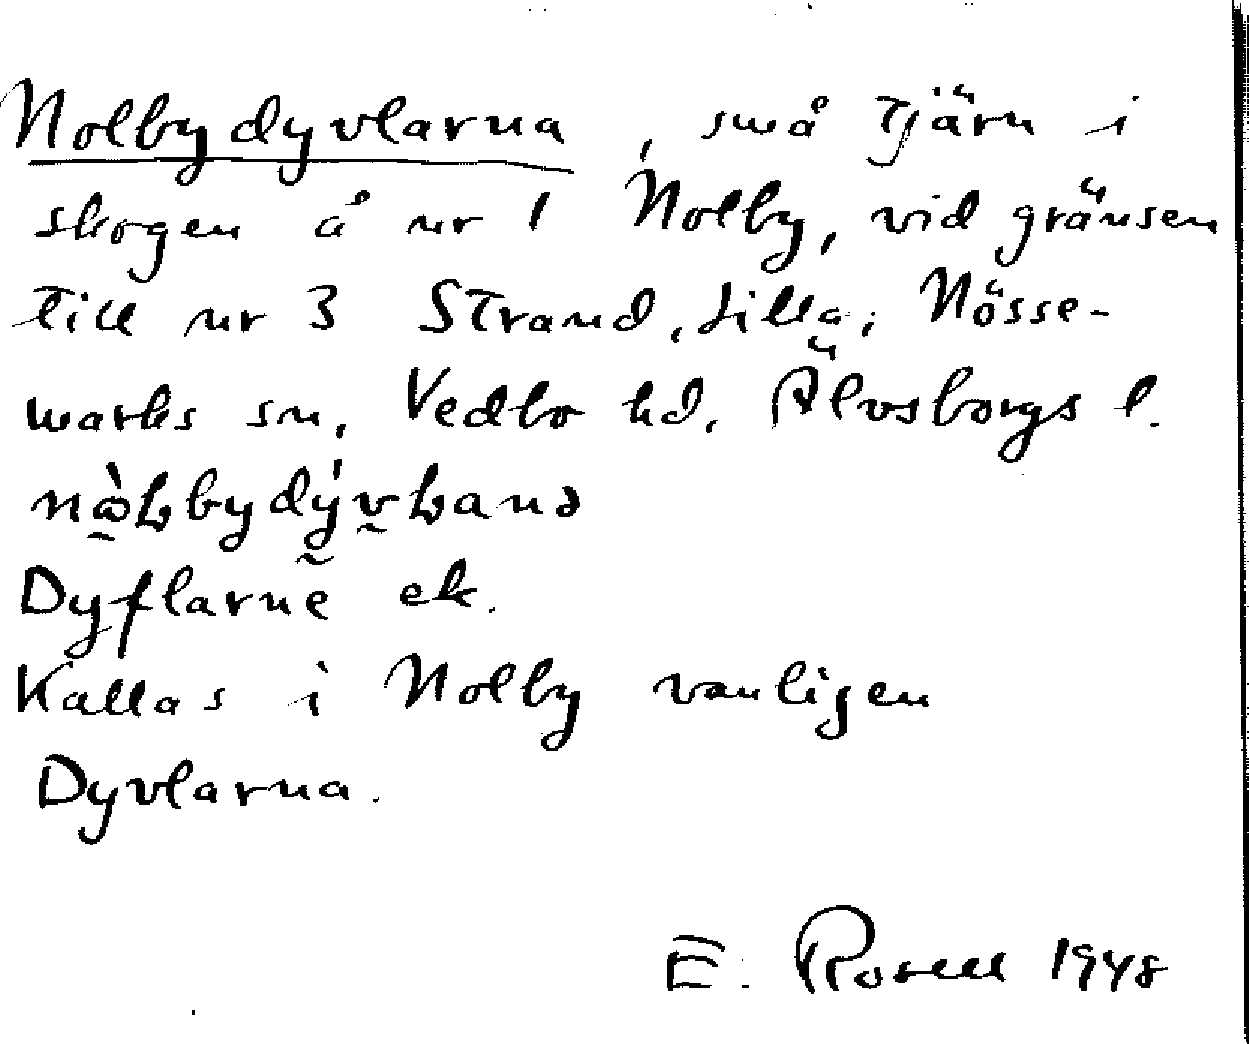 Nolbydyvlarna, små tjärn i
skogen å nr 1 Nolby, vid gränsen
till nr 3 Strand, Lilla, Nösse-
marks sn, Vedbo hd, Älvsborgs l.
Dyflarne ek.
Kallas i Nolby vanligen
Dyvlarna.
E. Rosell 1948